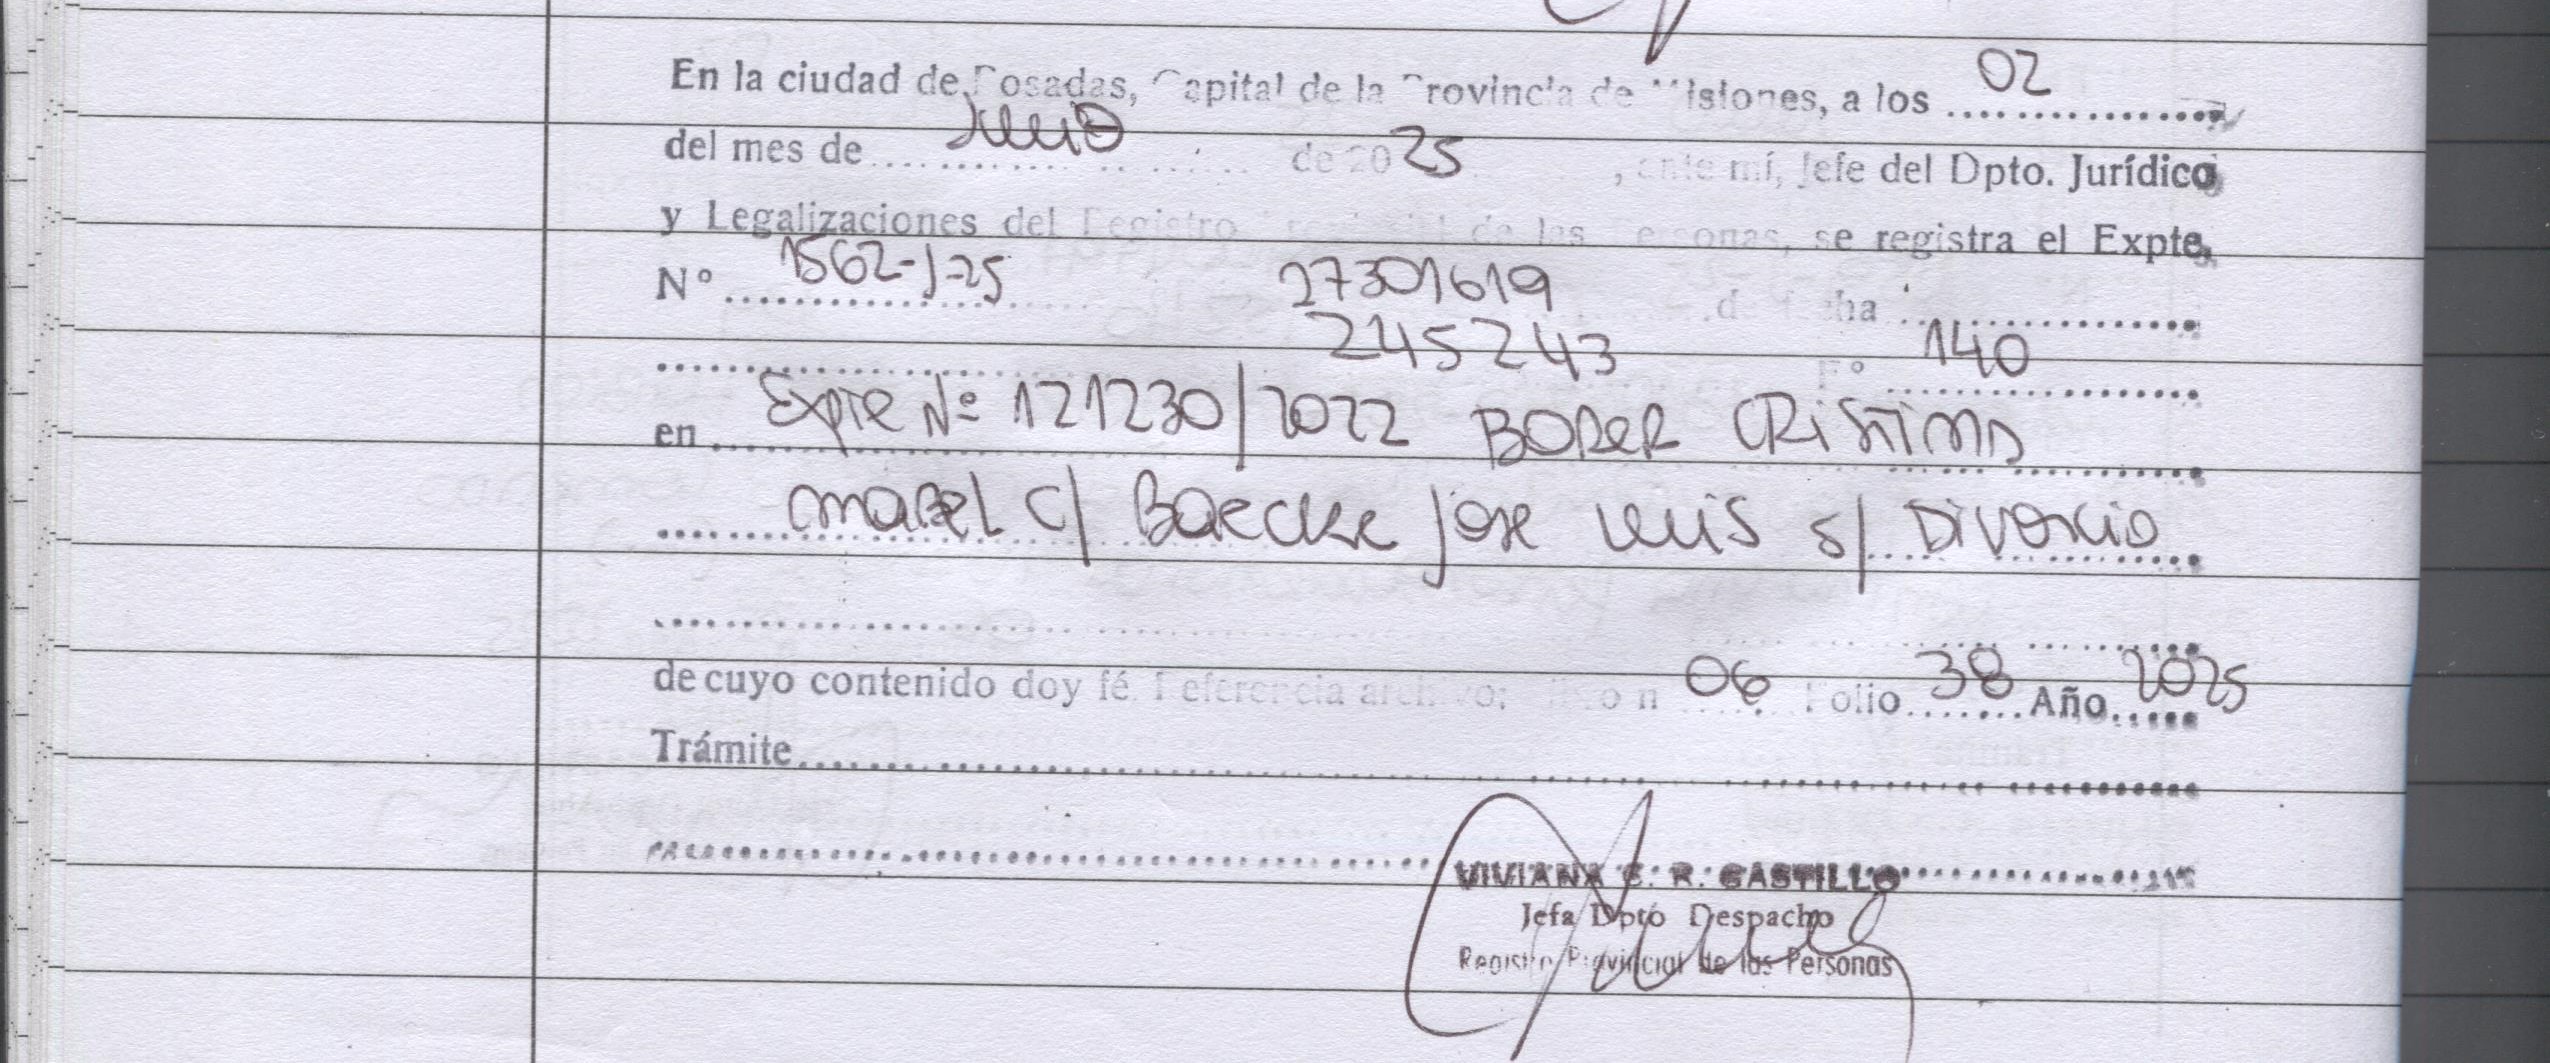 En la ciudad de Posadas, Capital de la Provincia de Misiones, a los 02
del mes de Junio de 2025, ante mí, Jefe del Dpto. Jurídico
y Legalizaciones del Registro Provincial de las Personas, se registra el Expte.
N° 1562-J-25 27301619 de fecha
2145243 F° 140
en Expte Nº 121230/2022 BODER CRISTINA
MABEL C/ Baecke Jose Luis s/ Divorcio
de cuyo contenido doy fé. Referencia archivo: libro n 06 Folio 38 Año 2025
Trámite
VIVIANA C. R. CASTILLO
Jefa Dpto Despacho
Registro Provincial de las Personas